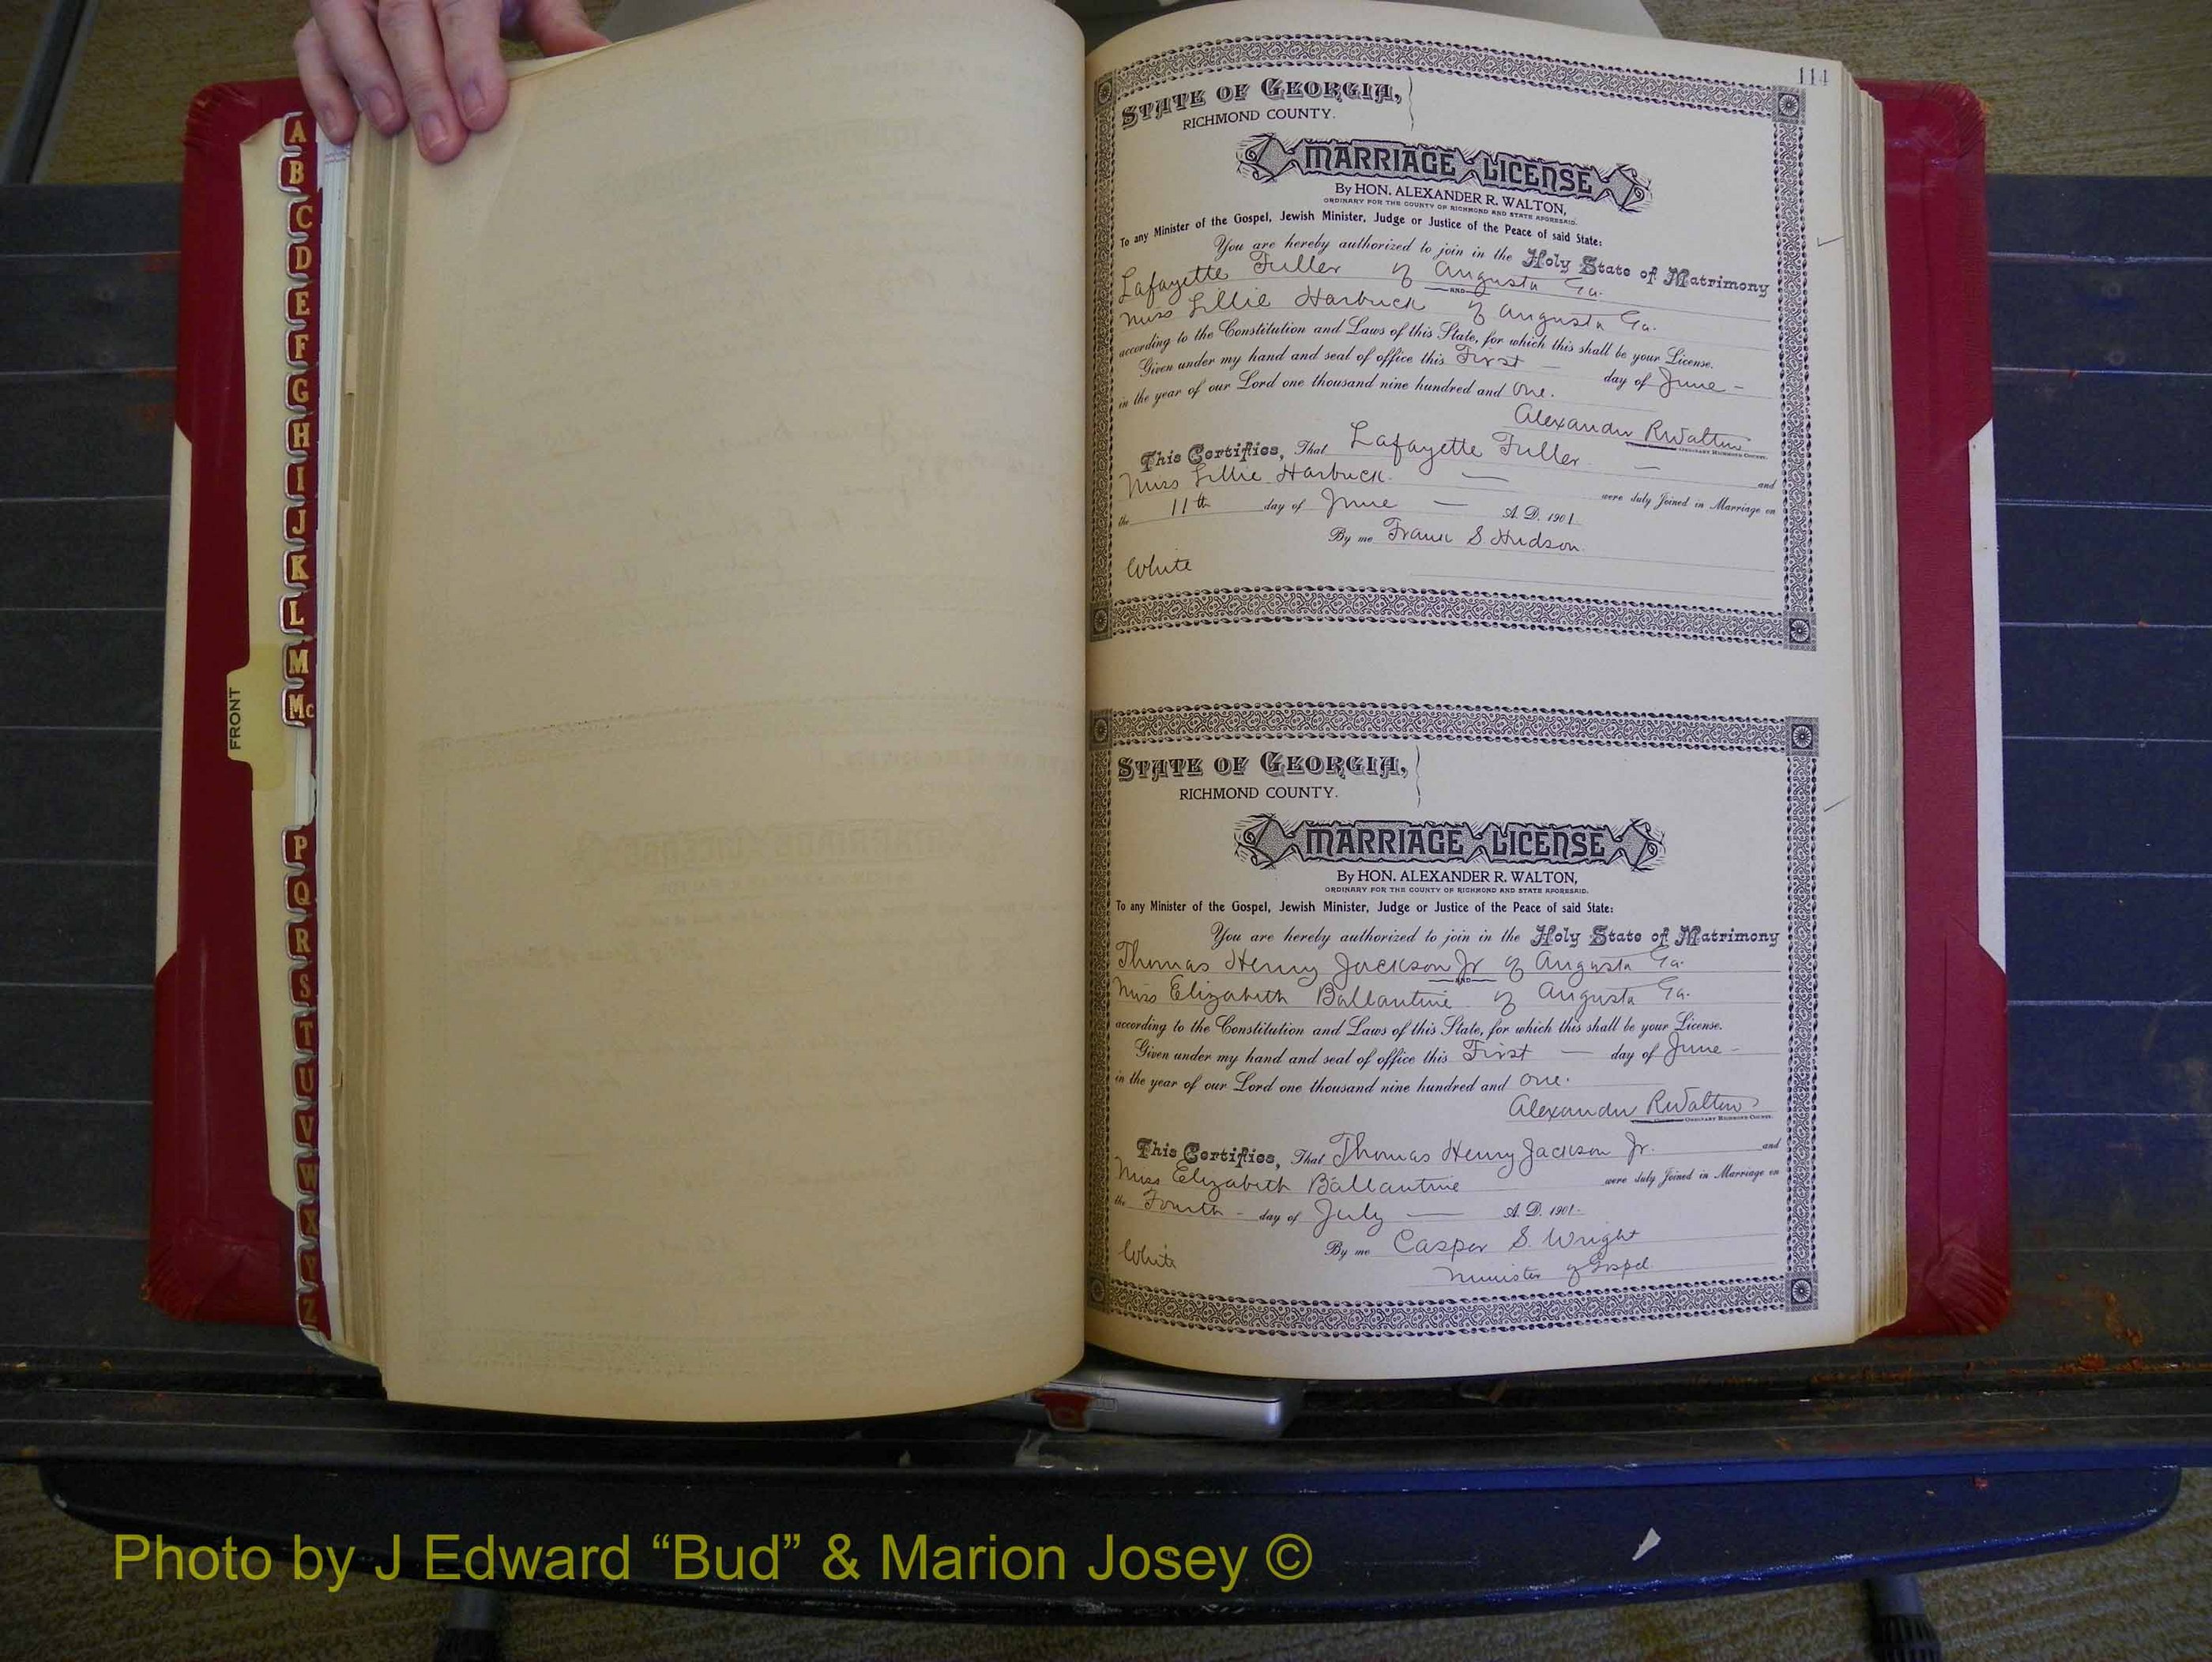 A
B
C
D
E
F
G
H
I
J
K
L
M
Mc
FRONT
P
Q
R
S
T
U
V
W
X
Y
Z
114
STATE OF GEORGIA,
RICHMOND COUNTY.
MARRIAGE LICENSE
By HON. ALEXANDER R. WALTON,
ORDINARY FOR THE COUNTY OF RICHMOND AND STATE AFORESAID.
To any Minister of the Gospel, Jewish Minister, Judge or Justice of the Peace of said State:
You are hereby authorized to join in the Holy State of Matrimony
Lafayette Fuller of Augusta Ga.
AND
Miss Lillie Harbuck of Augusta Ga.
according to the Constitution and Laws of this State, for which this shall be your License.
Given under my hand and seal of office this First — day of June -
in the year of our Lord one thousand nine hundred and One.
Alexander R Walton
ORDINARY RICHMOND COUNTY.
This Certifies, That Lafayette Fuller — and
Miss Lillie Harbuck. — were duly Joined in Marriage on
the 11th day of June — A. D. 1901
By me Frank S. Hudson.
White
STATE OF GEORGIA,
RICHMOND COUNTY.
MARRIAGE LICENSE
By HON. ALEXANDER R. WALTON,
ORDINARY FOR THE COUNTY OF RICHMOND AND STATE AFORESAID.
To any Minister of the Gospel, Jewish Minister, Judge or Justice of the Peace of said State:
You are hereby authorized to join in the Holy State of Matrimony
Thomas Henry Jackson Jr of Augusta Ga.
AND
Miss Elizabeth Ballantine of Augusta Ga.
according to the Constitution and Laws of this State, for which this shall be your License.
Given under my hand and seal of office this First — day of June -
in the year of our Lord one thousand nine hundred and One.
Alexander R Walton
ORDINARY RICHMOND COUNTY.
This Certifies, That Thomas Henry Jackson Jr. and
Miss Elizabeth Ballantine were duly Joined in Marriage on
the Fourth - day of July — A. D. 1901-
By me Casper S. Wright
White
Minister of Gospel.
Photo by J Edward “Bud” & Marion Josey ©